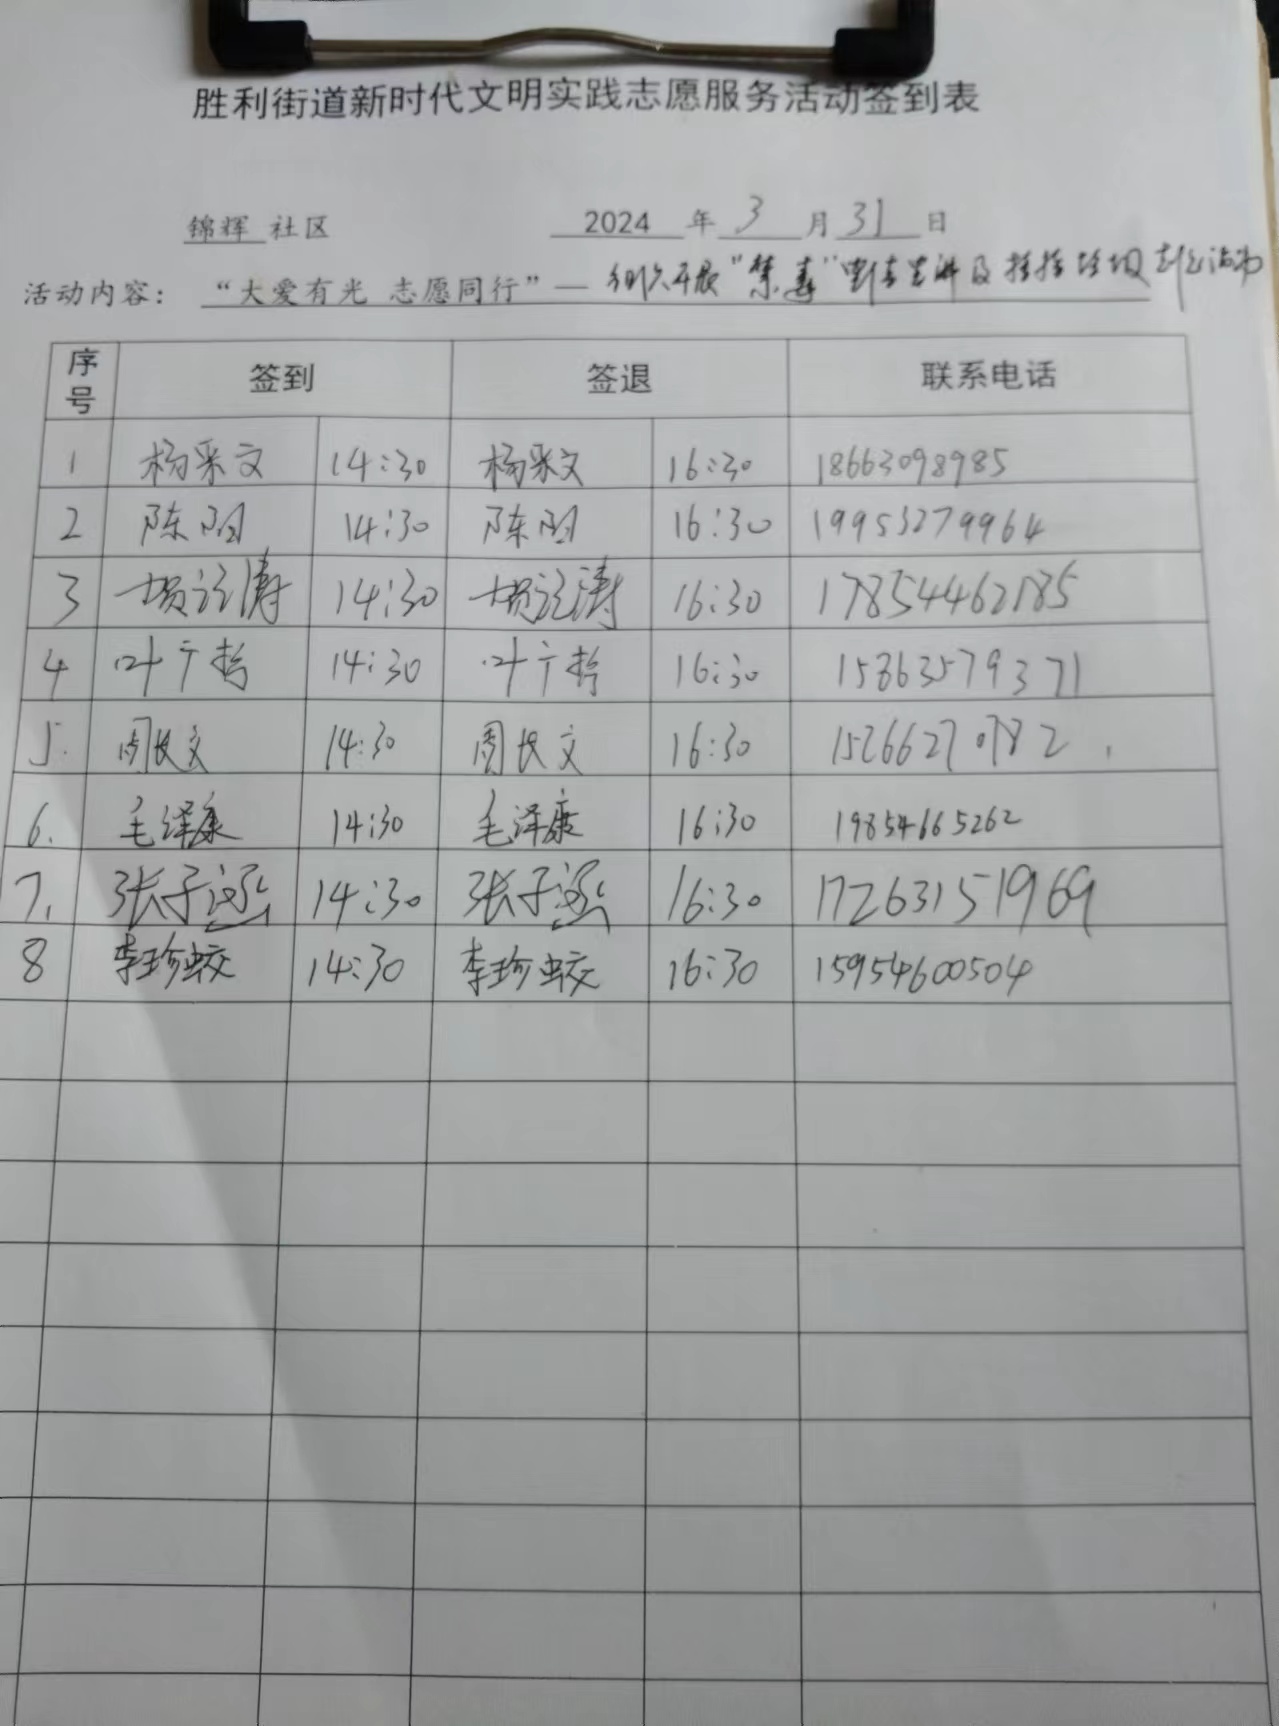 胜利街道新时代文明实践志愿服务活动签到表
锦辉 社区 2024 年 3 月 31 日
活动内容： “大爱有光 志愿同行”— 开展“禁毒”宣讲及捡拾垃圾志愿活动
序号 签到 签退 联系电话
1 杨采文 14:30 杨采文 16:30 18663098985
2 陈阳 14:30 陈阳 16:30 19953279964
3 14:30 16:30 17854462185
4 叶宁哲 14:30 叶宁哲 16:30 15863579371
5. 周长文 14:30 周长文 16:30 15266270782
6. 毛泽康 14:30 毛泽康 16:30 19854665262
7. 张子涵 14:30 张子涵 16:30 17263151969
8 李珍蛟 14:30 李珍蛟 16:30 15954600504